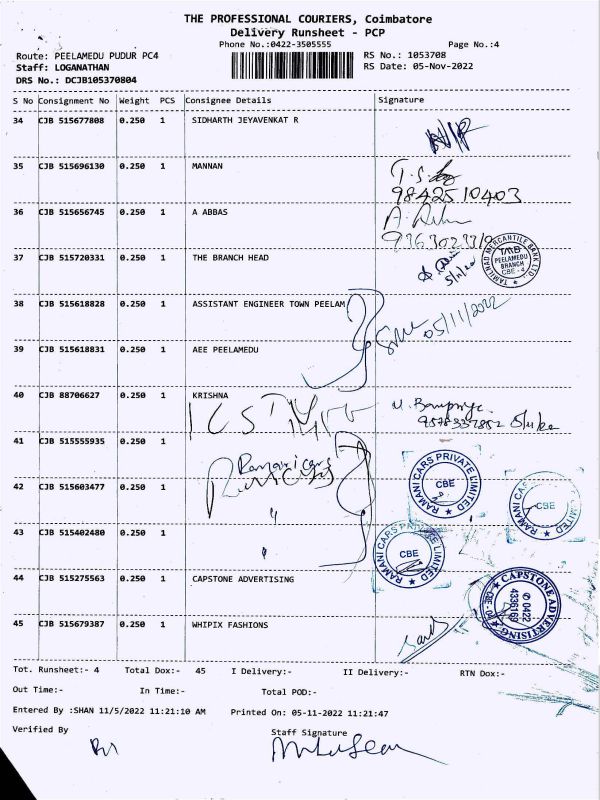 THE PROFESSIONAL COURIERS, Coimbatore
Delivery Runsheet - PCP
Phone No.:0422-3505555 Page No.:4
Route: PEELAMEDU PUDUR PC4 RS No.: 1053708
Staff: LOGANATHAN RS Date: 05-Nov-2022
DRS No.: DCJB105370804
S No Consignment No Weight PCS Consignee Details Signature
34 CJB 515677808 0.250 1 SIDHARTH JEYAVENKAT R
35 CJB 515696130 0.250 1 MANNAN
9842510403
36 CJB 515656745 0.250 1 A ABBAS
37 CJB 515720331 0.250 1 THE BRANCH HEAD
5/11/22
TAMILNAD MERCANTILE BANK LTD.
TMB
PEELAMEDU
BRANCH
CBE - 4
38 CJB 515618828 0.250 1 ASSISTANT ENGINEER TOWN PEELAM
05/11/2022
39 CJB 515618831 0.250 1 AEE PEELAMEDU
40 CJB 88706627 0.250 1 KRISHNA
41 CJB 515555935 0.250 1
Ramani cars
RAMANI CARS PRIVATE LIMITED
CBE
42 CJB 515603477 0.250 1
CBE
43 CJB 515402480 0.250 1
RAMANI CARS PRIVATE LIMITED
CBE
44 CJB 515275563 0.250 1 CAPSTONE ADVERTISING
CAPSTONE ADVERTISING
0422
4336169
45 CJB 515679387 0.250 1 WHIPIX FASHIONS
Tot. Runsheet:- 4 Total Dox:- 45 I Delivery:- II Delivery:- RTN Dox:-
Out Time:- In Time:- Total POD:-
Entered By :SHAN 11/5/2022 11:21:10 AM Printed On: 05-11-2022 11:21:47
Verified By Staff Signature